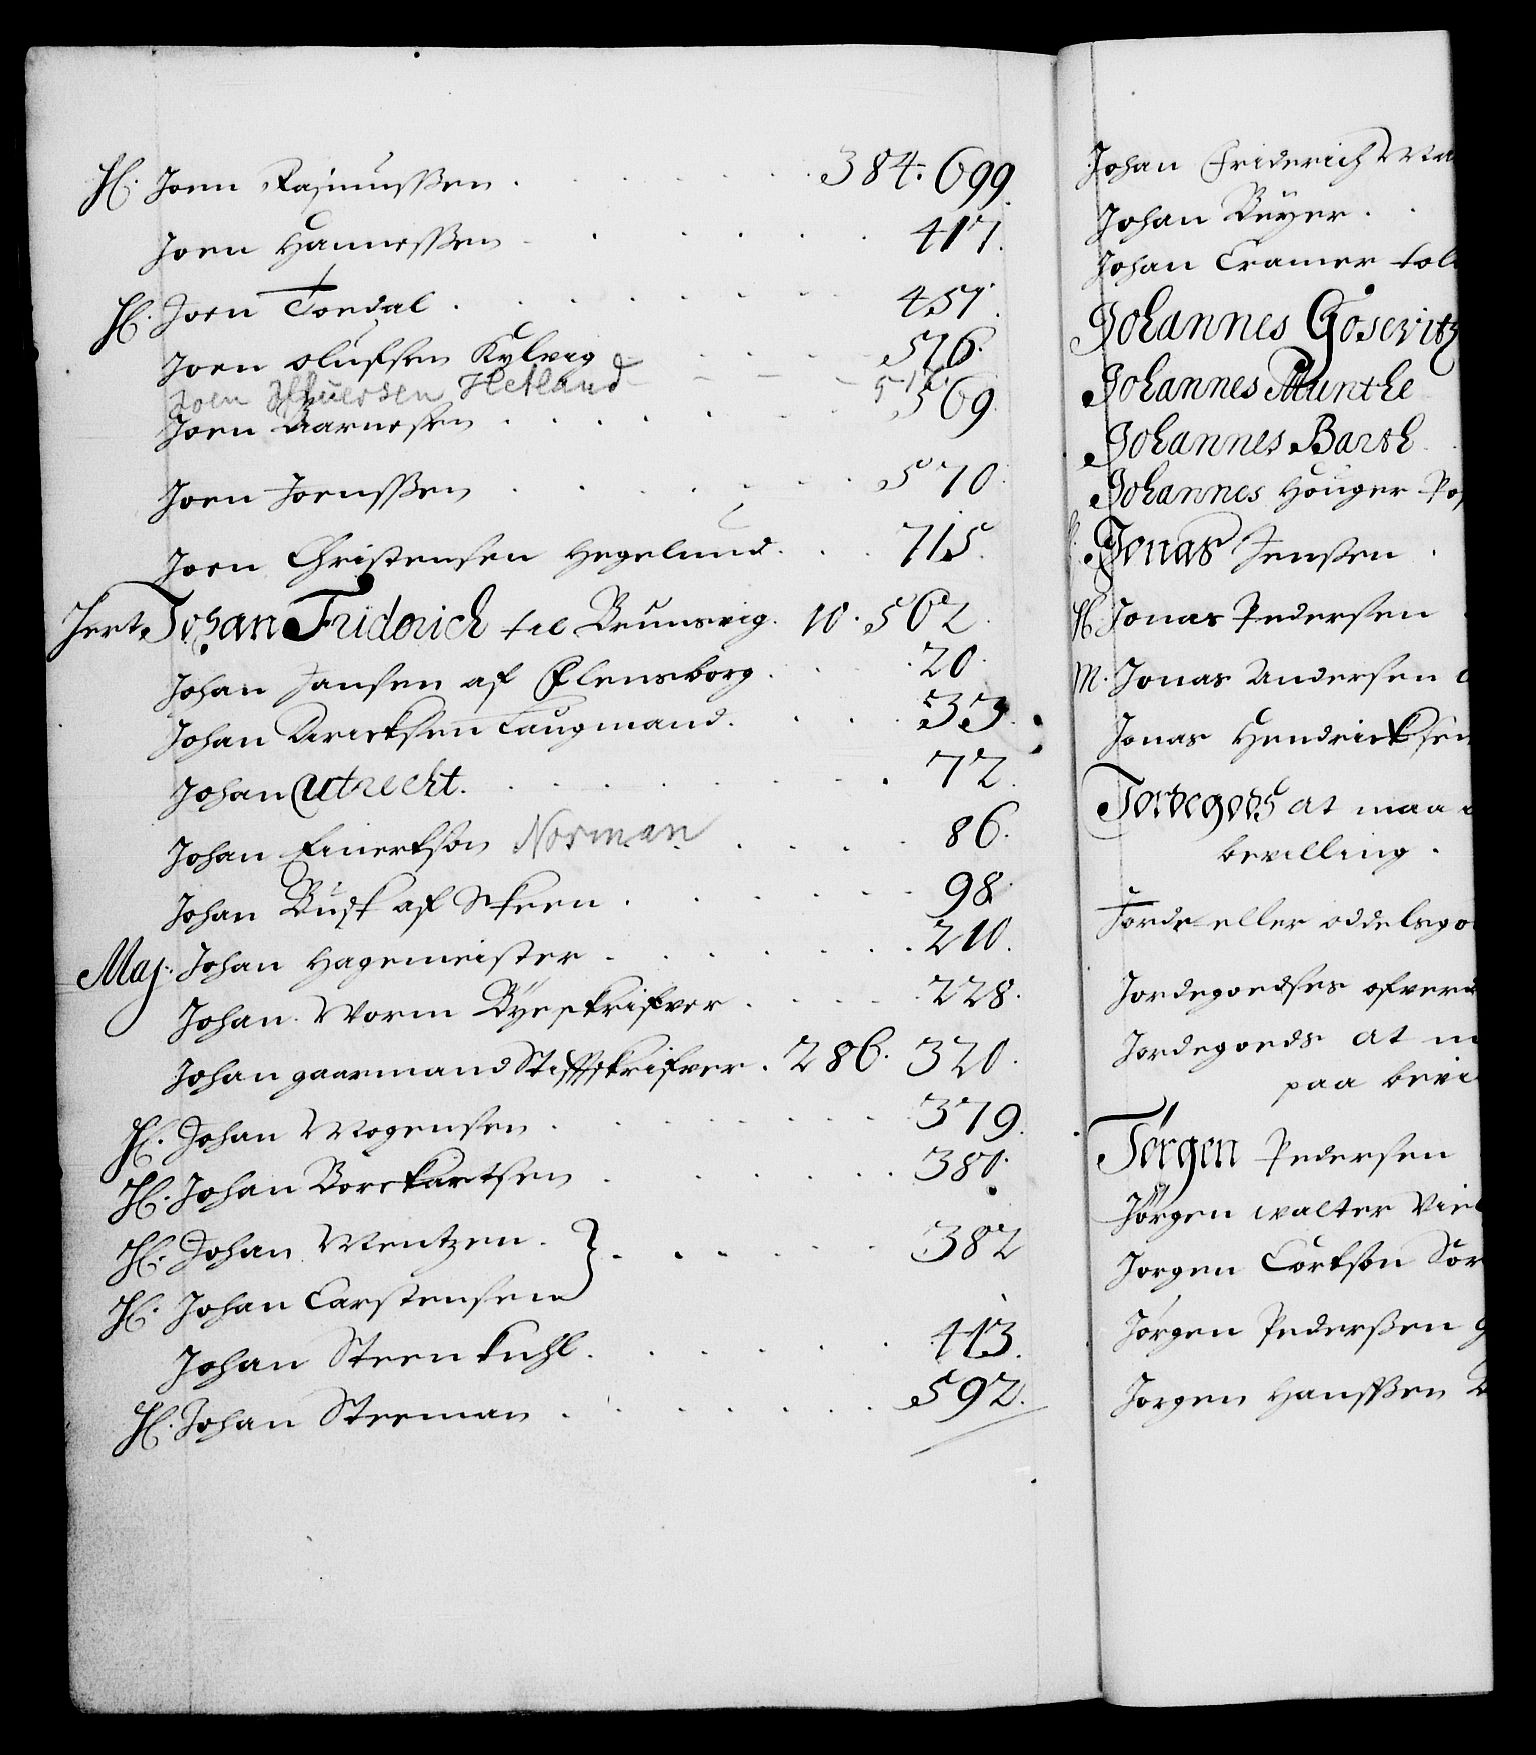 H. Joen Rasmussen . . . . . . . 384. 699.
Joen Hannessen . . . . . . 417.
H. Joen Tondal . . . . . . . 457.
Joen Olufsen Kylvig . . . . 516.
Joen Ifuersen Hetland - - - - 516
Joen Aarnesen . . . . . . 569.
Joen Joenssen . . . . . . 570.
Joen Christensen Hegelund . . . 715.
Hert. Johan Friderich til Brunsvig. 10. 502.
Johan Jansen af Flensborg . . . . 20.
Johan Diricksen Laugmand . . . . 33.
Johan Utrecht . . . . . . . 72.
Johan Einerksøn Norman . . . . 86.
Johan Busk af Skeen . . . . . 98.
Maj. Johan Hagemeister . . . . . . 210.
Johan Worm Byeskrifver . . . . 228.
Johan Gaarmand Stiftskrifver. 286. 320.
H. Johan Mogensen . . . . . . . 379.
H. Johan Borckartsen . . . . . . 380.
H. Johan Mentzen . } . . . . . . 382
H. Johan Carstensen
Johan Steenkuhl . . . . . . 443.
H. Johan Steeman . . . . . . . 592.
Johan Friderich
Johan Beyer . .
Johan Cramer
Johannes Gosevitz
Johannes Munthe
Johannes Barth
Johannes Houger
Jonas Jenssen .
H. Jonas Pedersen
M. Jonas Andersen
Jonas Hendricksen
Jordegods at maa
bevilling .
Jorde eller oddelsgo
Jordegoedses
Jordegoeds at
paa bevi
Jørgen Pedersen
Jørgen Walter
Jørgen Sør
Jørgen Pederssen
Jørgen Hanssen